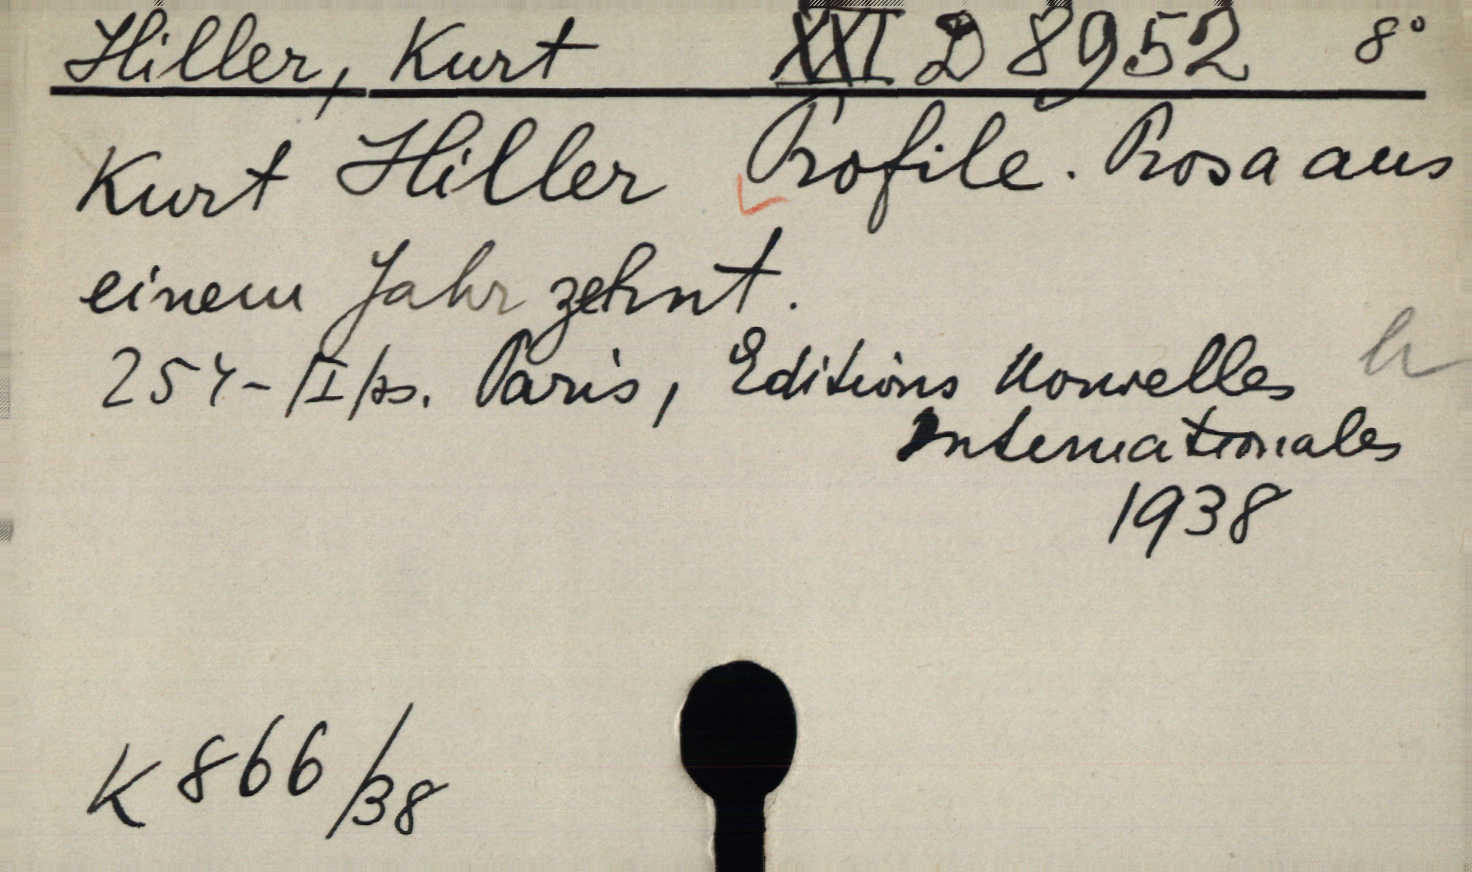 Hiller, Kurt XXI D 8952 8°
Kurt Hiller Profile. Prosa aus
einem Jahrzehnt.
254-/I/ps. Paris, Editions Nouvelles
Internationales
1938
K 866/38